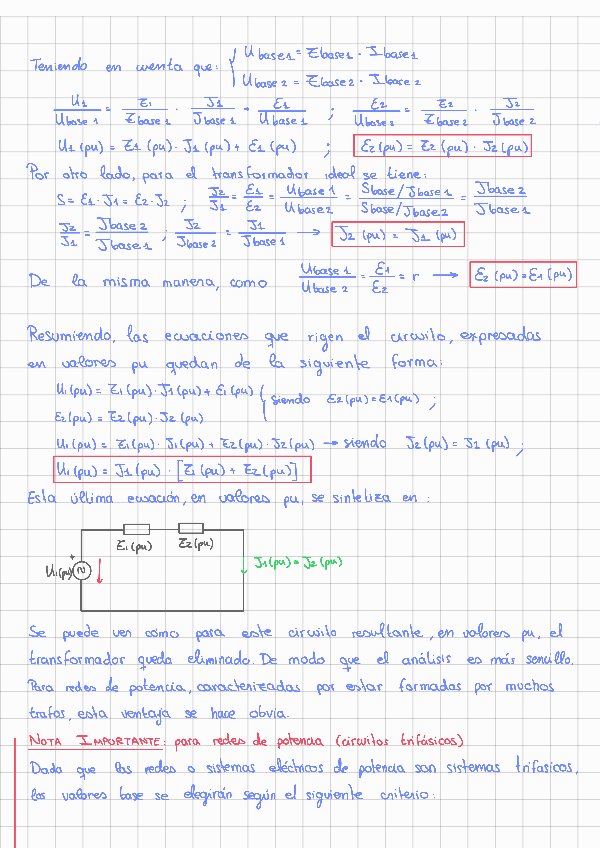 Teniendo en cuenta que: { Ubase1 = Zbase1 · Ibase1
Ubase2 = Zbase2 · Ibase2
U1/Ubase1 = Z1/Zbase1 · I1/Ibase1 + E1/Ubase1 ; E2/Ubase2 = Z2/Zbase2 · I2/Ibase2
U1(pu) = Z1(pu) · I1(pu) + E1(pu) ; E2(pu) = Z2(pu) · I2(pu)
Por otro lado, para el transformador ideal se tiene:
S = E1·I1 = E2·I2 ; I2/I1 = E1/E2 = Ubase1/Ubase2 = Sbase/Ibase1 / Sbase/Ibase2 = Ibase2/Ibase1
I2/I1 = Ibase2/Ibase1 ; I2/Ibase2 = I1/Ibase1 → I2(pu) = I1(pu)
De la misma manera, como Ubase1/Ubase2 = E1/E2 = r → E2(pu) = E1(pu)
Resumiendo, las ecuaciones que rigen el circuito, expresadas
en valores pu quedan de la siguiente forma:
U1(pu) = Z1(pu) · I1(pu) + E1(pu) { siendo E2(pu) = E1(pu) ;
E2(pu) = Z2(pu) · I2(pu)
U1(pu) = Z1(pu) · I1(pu) + Z2(pu) · I2(pu) → siendo I2(pu) = I1(pu) ;
U1(pu) = I1(pu) · [Z1(pu) + Z2(pu)]
Esta última ecuación, en valores pu, se sintetiza en :
Z1(pu) Z2(pu)
+
U1(pu)
I1(pu) = I2(pu)
Se puede ver cómo para este circuito resultante, en valores pu, el
transformador queda eliminado. De modo que el análisis es más sencillo.
Para redes de potencia, caracterizadas por estar formadas por muchos
trafos, esta ventaja se hace obvia.
NOTA IMPORTANTE: para redes de potencia (circuitos trifásicos)
Dado que las redes o sistemas eléctricos de potencia son sistemas trifasicos,
los valores base se elegirán según el siguiente criterio: